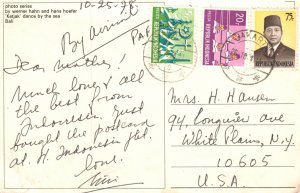 photo series
by werner hahn and hans hoefer
'Ketjak' dance by the sea
Bali
10-25-78
By airmail
Dear Mother!
Much love & all
the best from
Indonesia, just
bought the postcard
at H. Indonesia Htl.
Love
Mrs. H. Hansen
94, Longview ave
White Plains, N.Y.
10605
U.S.A.
20
REPUBLIK INDONESIA
75
REPUBLIK INDONESIA